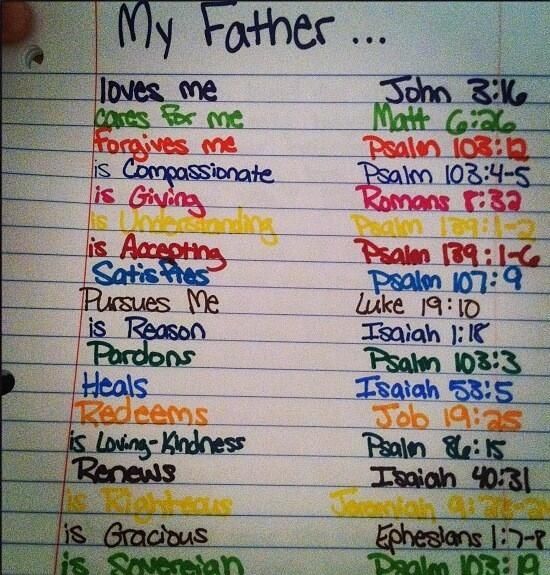 My Father ...
loves me John 3:16
cares for me Matt 6:26
Forgives me Psalm 103:12
is Compassionate Psalm 103:4-5
is Giving Romans 8:32
is Understanding Psalm 139:1-2
is Accepting Psalm 139:1-6
Satisfies Psalm 107:9
Pursues Me Luke 19:10
is Reason Isaiah 1:18
Pardons Psalm 103:3
Heals Isaiah 53:5
Redeems Job 19:25
is Loving-Kindness Psalm 86:15
Renews Isaiah 40:31
is Righteous Jeremiah
is Gracious Ephesians 1:7-8
is Sovereign Psalm 103:19